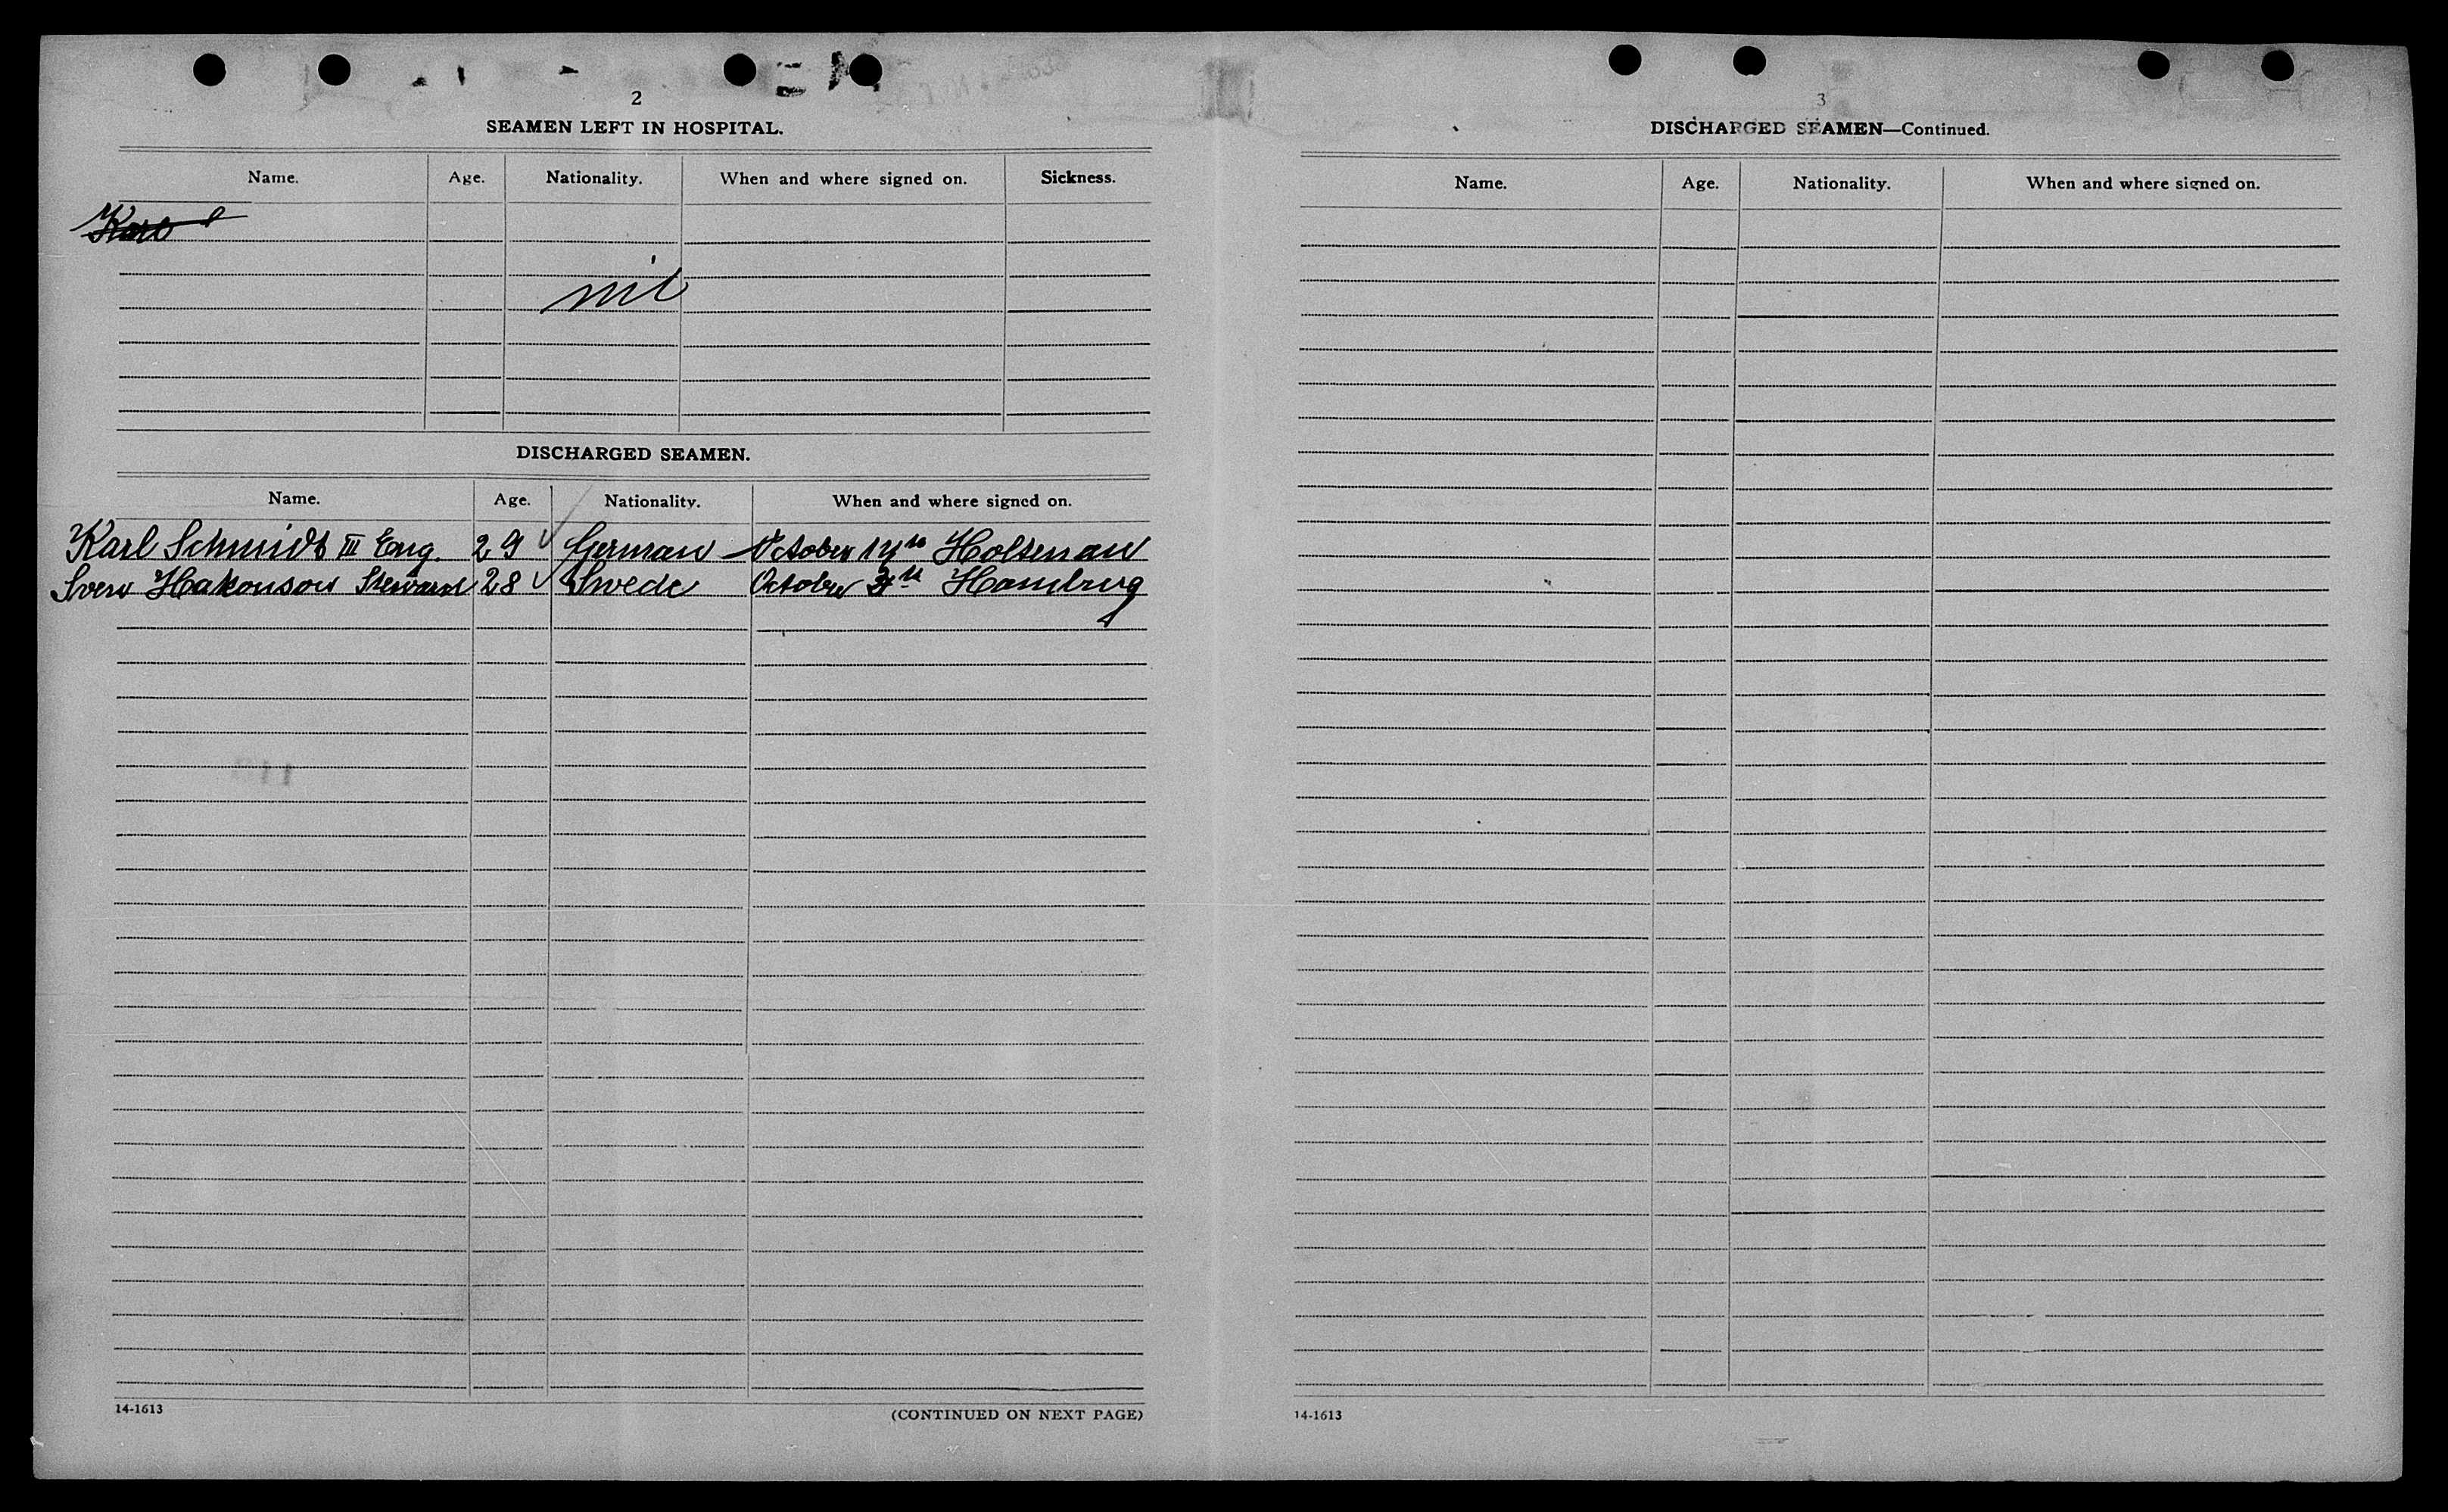 2
SEAMEN LEFT IN HOSPITAL.
Name. Age. Nationality. When and where signed on. Sickness.
Karl
nil
DISCHARGED SEAMEN.
Name. Age. Nationality. When and where signed on.
Karl Schmidt III Eng. 29 German October 14th Holtenau
Sven Hakonson Steward 28 Swede October th Hamburg
14-1613
(CONTINUED ON NEXT PAGE)
3
DISCHARGED SEAMEN—Continued.
Name. Age. Nationality. When and where signed on.
14-1613